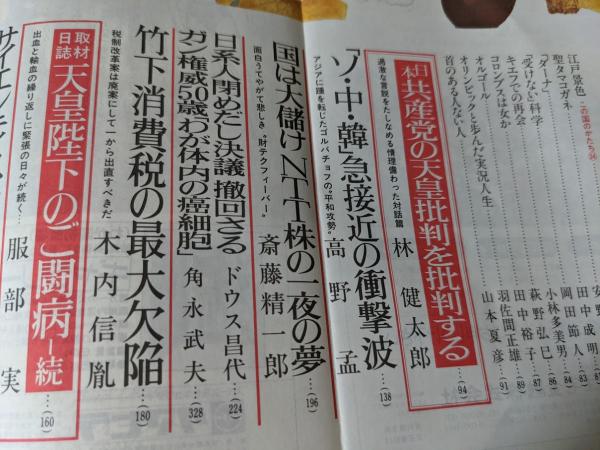 江戸景色 この国のかたち㉞
聖タマゴガネ
「ダーナ」
「受けない」科学
キエフでの再会
コロンブスは女か
オルゴール
オリンピックと歩んだ実況人生
首のある人ない人
田中成明 83
岡田節人 84
小林多美男 86
萩野弘巳 87
田中裕子 89
羽佐間正雄 91
山本夏彦
過激な言説をたしなめる情理備わった対話篇
日本共産党の天皇批判を批判する 林健太郎…(94)
アジアに踵を転じたゴルバチョフの〝平和攻勢〟
「ソ・中・韓」急接近の衝撃波 高野孟…(138)
国は大儲け NTT株の一夜の夢…(196)
面白うてやがて悲しき〝財テクフィーバー〟 斎藤精一郎
日系人閉めだし決議 撤回さる ドウス昌代…(224)
ガン権威50歳「わが体内の癌細胞」 角永武夫…(328)
竹下消費税の最大欠陥…(180)
税制改革案は廃案にして一から出直すべきだ 木内信胤
取材日誌 天皇陛下のご闘病—続…(160)
出血と輸血の繰り返しに緊張の日々が続く… 服部実